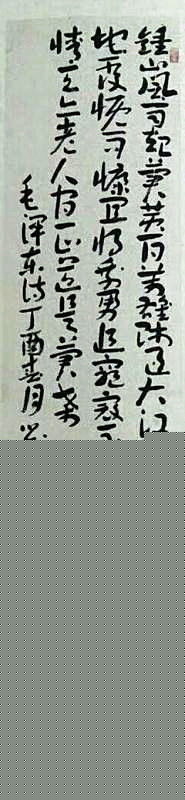 鍾山风雨起蒼黄百万雄师过大江
地覆慨而慷宜将剩勇追窮寇不
情天亦老人间正道是蒼桑
毛泽东诗丁酉春月